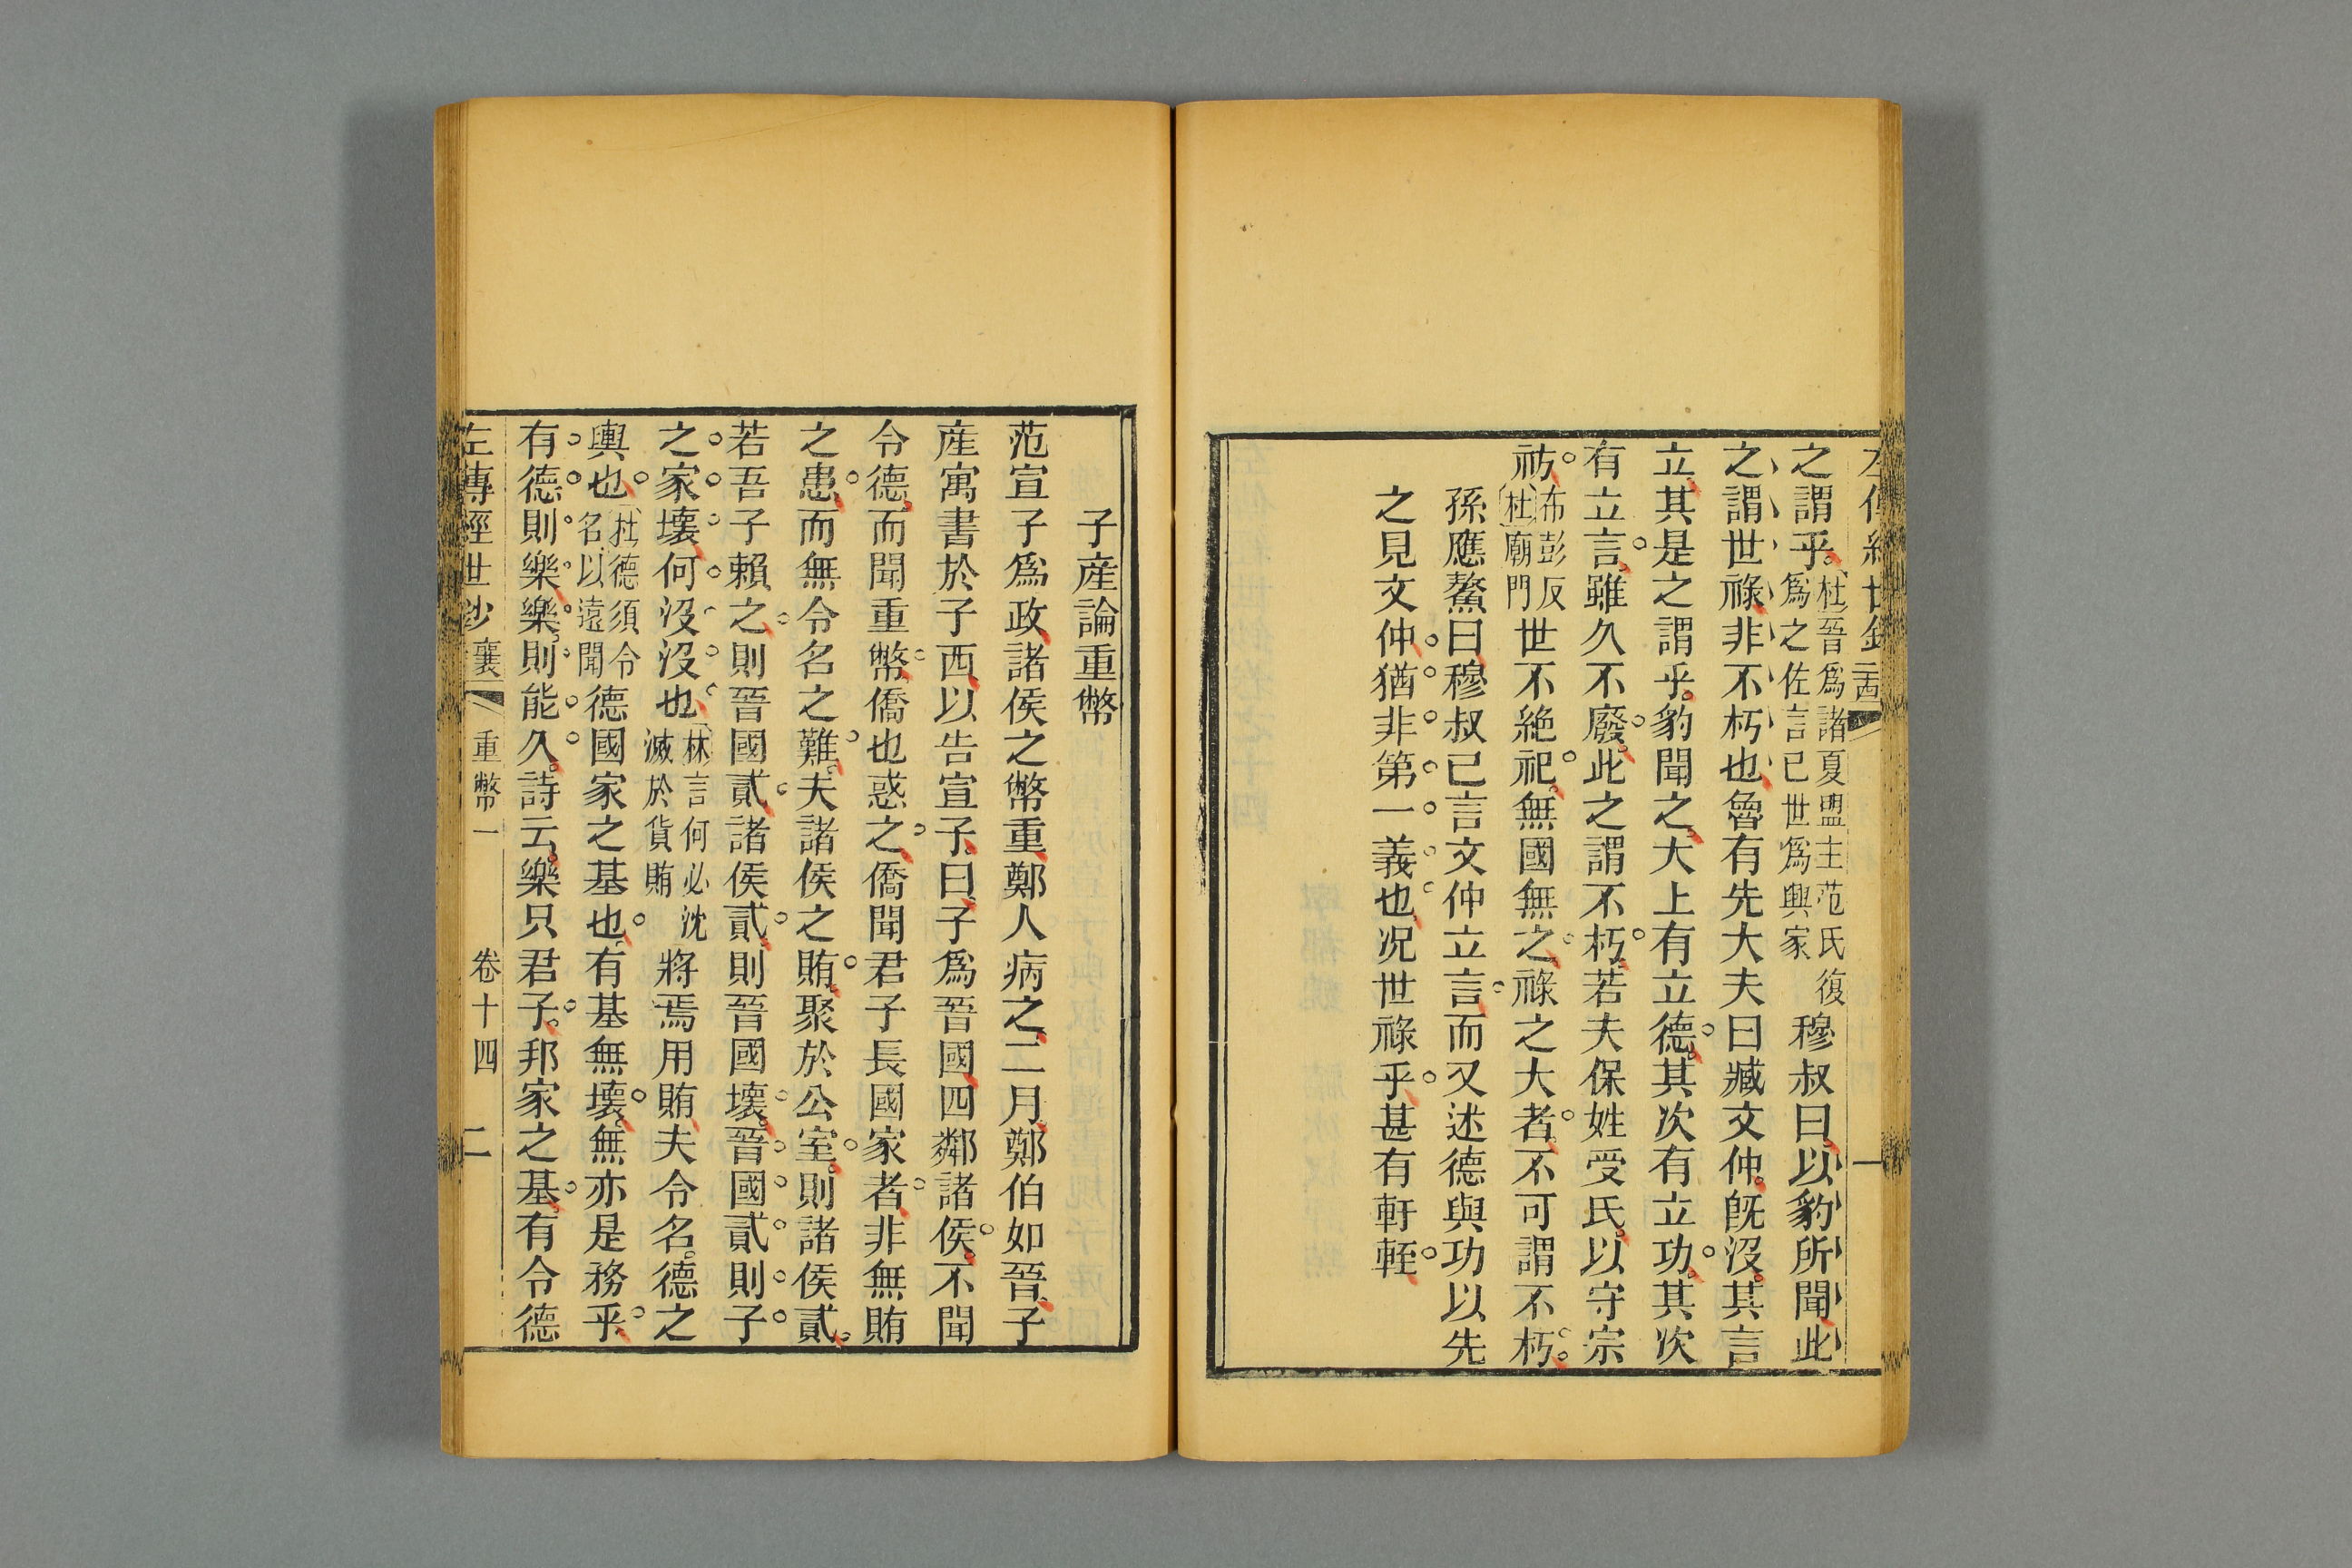 之謂乎杜晉爲諸夏盟主范氏復爲之佐言已世爲興家穆叔曰以豹所聞此
之謂世祿非不朽也魯有先大夫曰臧文仲旣沒其言
立其是之謂乎豹聞之大上有立德其次有立功其次
有立言雖久不廢此之謂不朽若夫保姓受氏以守宗
祊布彭反杜廟門世不絶祀無國無之祿之大者不可謂不朽
孫應鰲曰穆叔已言文仲立言而又述德與功以先
之見文仲猶非第一義也况世祿乎甚有軒輊
子產論重幣
范宣子爲政諸侯之幣重鄭人病之二月鄭伯如晉子
產寓書於子西以告宣子曰子爲晉國四鄰諸侯不聞
令德而聞重幣僑也惑之僑聞君子長國家者非無賄
之患而無令名之難夫諸侯之賄聚於公室則諸侯貳
若吾子賴之則晉國貳諸侯貳則晉國壞晉國貳則子
之家壞何沒沒也林言何必沈滅於貨賄將焉用賄夫令名德之
輿也杜德須令名以遠聞德國家之基也有基無壞無亦是務乎
有德則樂樂則能久詩云樂只君子邦家之基有令德
左傳經世鈔 襄 重幣一 卷十四 二